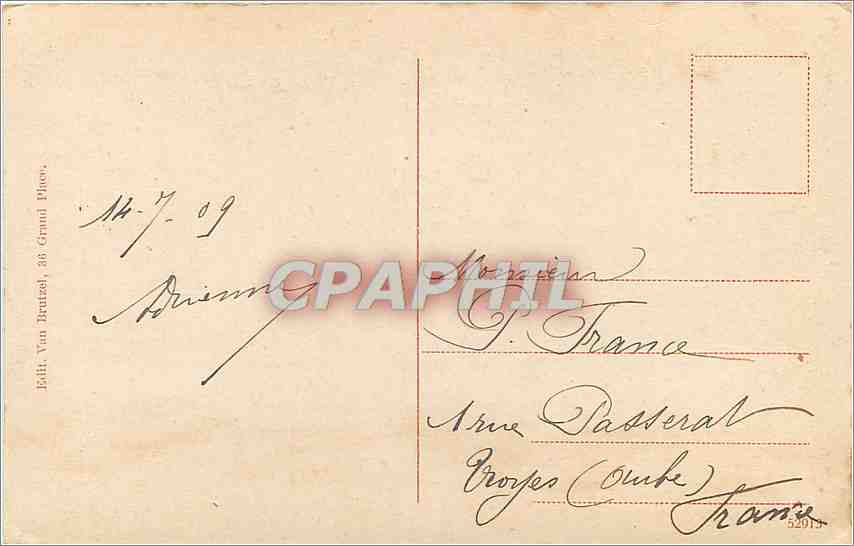 Edit. Van Brutzel, 36 Grand Place.
14-7-09
Adrienne
CPAPHIL
Monsieur
P. France
1 rue Passerat
Troyes (Aube)
France
52913